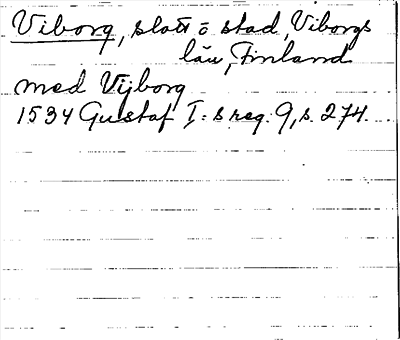 Viborg, slott o stad, Viborgs
län, Finland
med Vijborg
1534 Gustaf I:s reg. 9, s. 274.